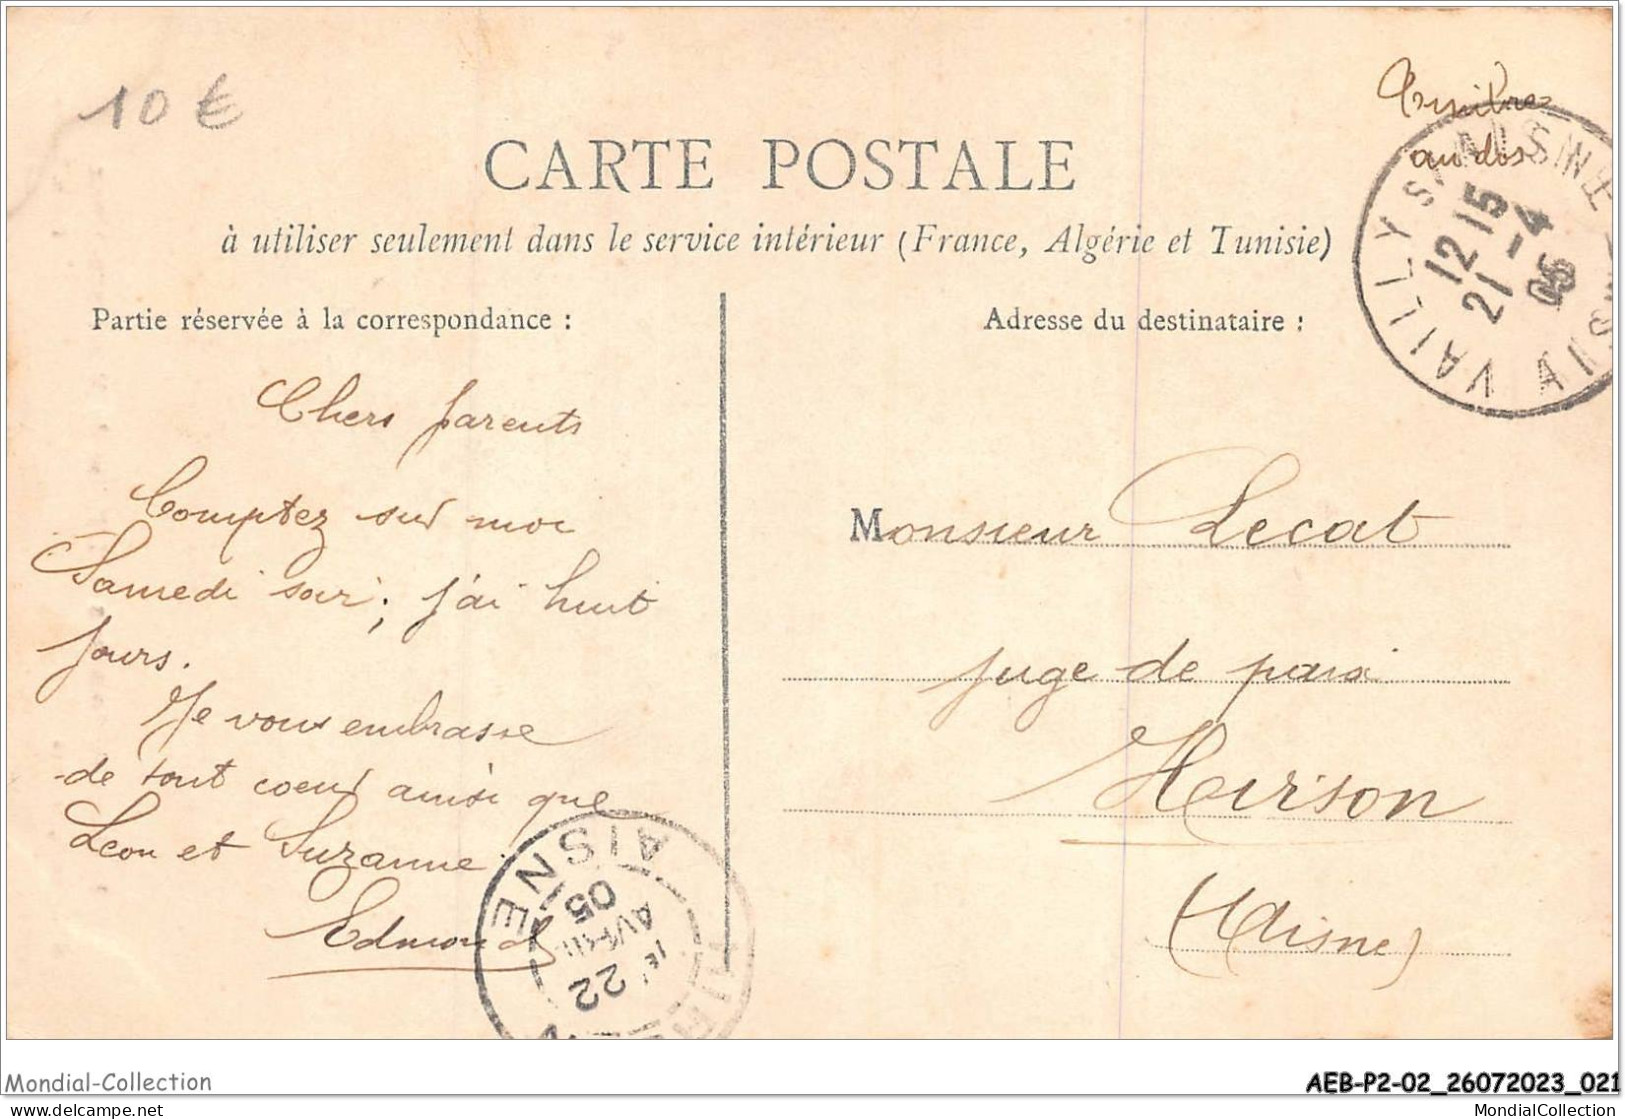 10 €
Timbre
au dos
CARTE POSTALE
à utiliser seulement dans le service intérieur (France, Algérie et Tunisie)
Partie réservée à la correspondance :
Adresse du destinataire :
VAILLY S/ AISNE AISNE
12 15
21 -4
Chers parents
Comptez sur moi
Samedi soir; j'ai huit
jours.
Je vous embrasse
de tout coeur ainsi que
Léon et Suzanne
Edmond
Monsieur Lecat
juge de paix
Hirson
(Aisne)
AISNE
22
AVRIL
05
Mondial-Collection
AEB-P2-02_26072023_021
www.delcampe.net
MondialCollection